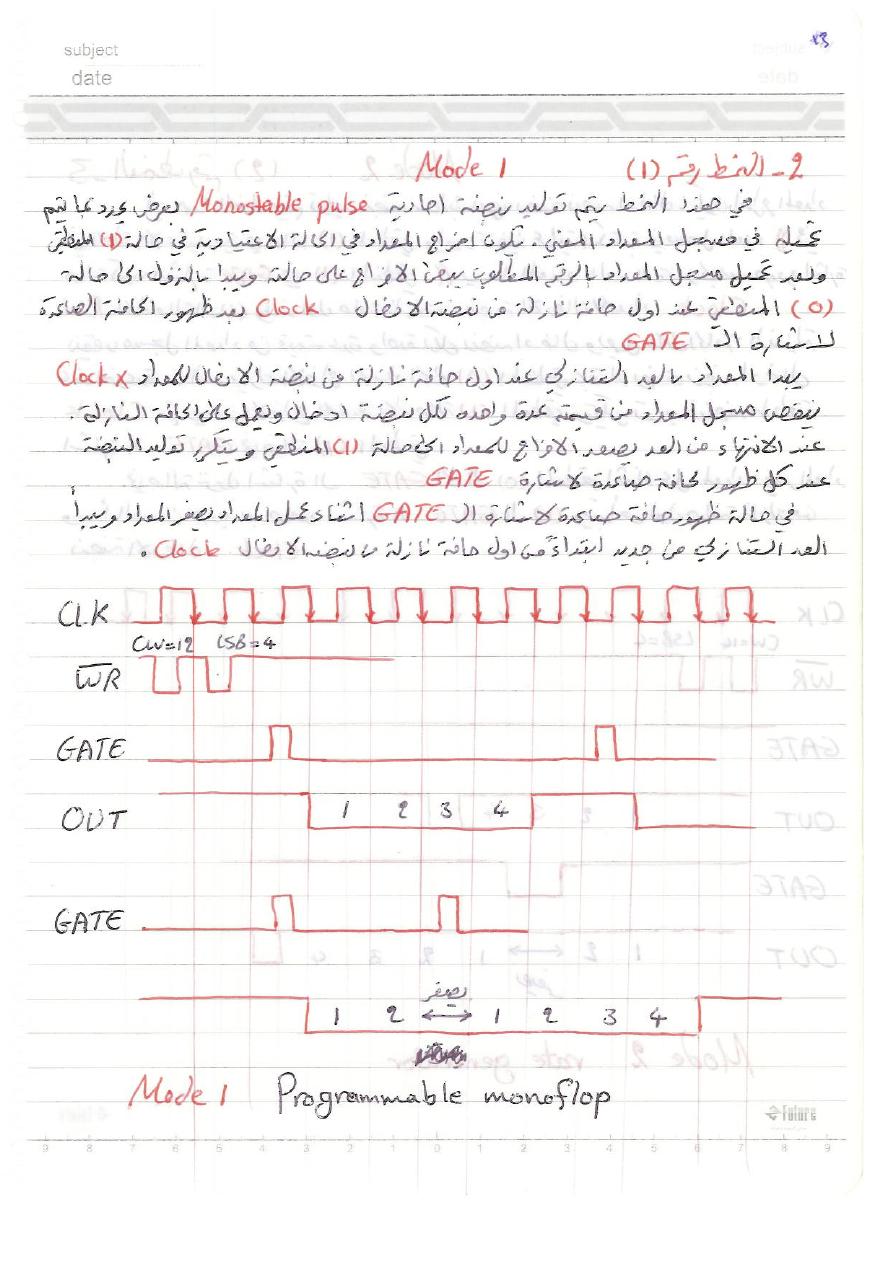 subject
date
2- النمط رقم (1) Mode 1
في هذا النمط يتم توليد نبضة احادية Monostable pulse بعرض يحدد بما يتم
تحميله في مسجل العداد المعني. تكون اخراج العداد في الحالة الاعتيادية في حالة (1) المنطقي
وبعد تحميل مسجل العداد بالرقم المطلوب يبقى الاخراج على حالته ويبدا بالنزول الى حالة
(0) المنطقي عند اول حافة نازلة من نبضة الادخال Clock بعد ظهور الحافة الصاعدة
لاشارة الـ GATE
يبدا العداد بالعد التنازلي عند اول حافة نازلة من نبضة الادخال للعداد Clock x
ينقص مسجل العداد من قيمته عدة واحده لكل نبضة ادخال ويعمل على الحافة النازلة.
عند الانتهاء من العد يصعد الاخراج للعداد الى حالة (1) المنطقي ويتكرر توليد النبضة
عند كل ظهور لحافة صاعدة لاشارة GATE
في حالة ظهور حافة صاعدة لاشارة الـ GATE اثناء عمل العداد يصفر العداد ويبدأ
العد التنازلي من جديد ابتداءً من اول حافة نازلة من نبضة الادخال Clock.
CLK
CW=12 LSB=4
WR
GATE
OUT 1 2 3 4
GATE
يصفر
1 2 1 2 3 4
Mode 1 Programmable monoflop
Future
9 8 7 6 5 4 3 2 1 0 1 2 3 4 5 6 7 8 9